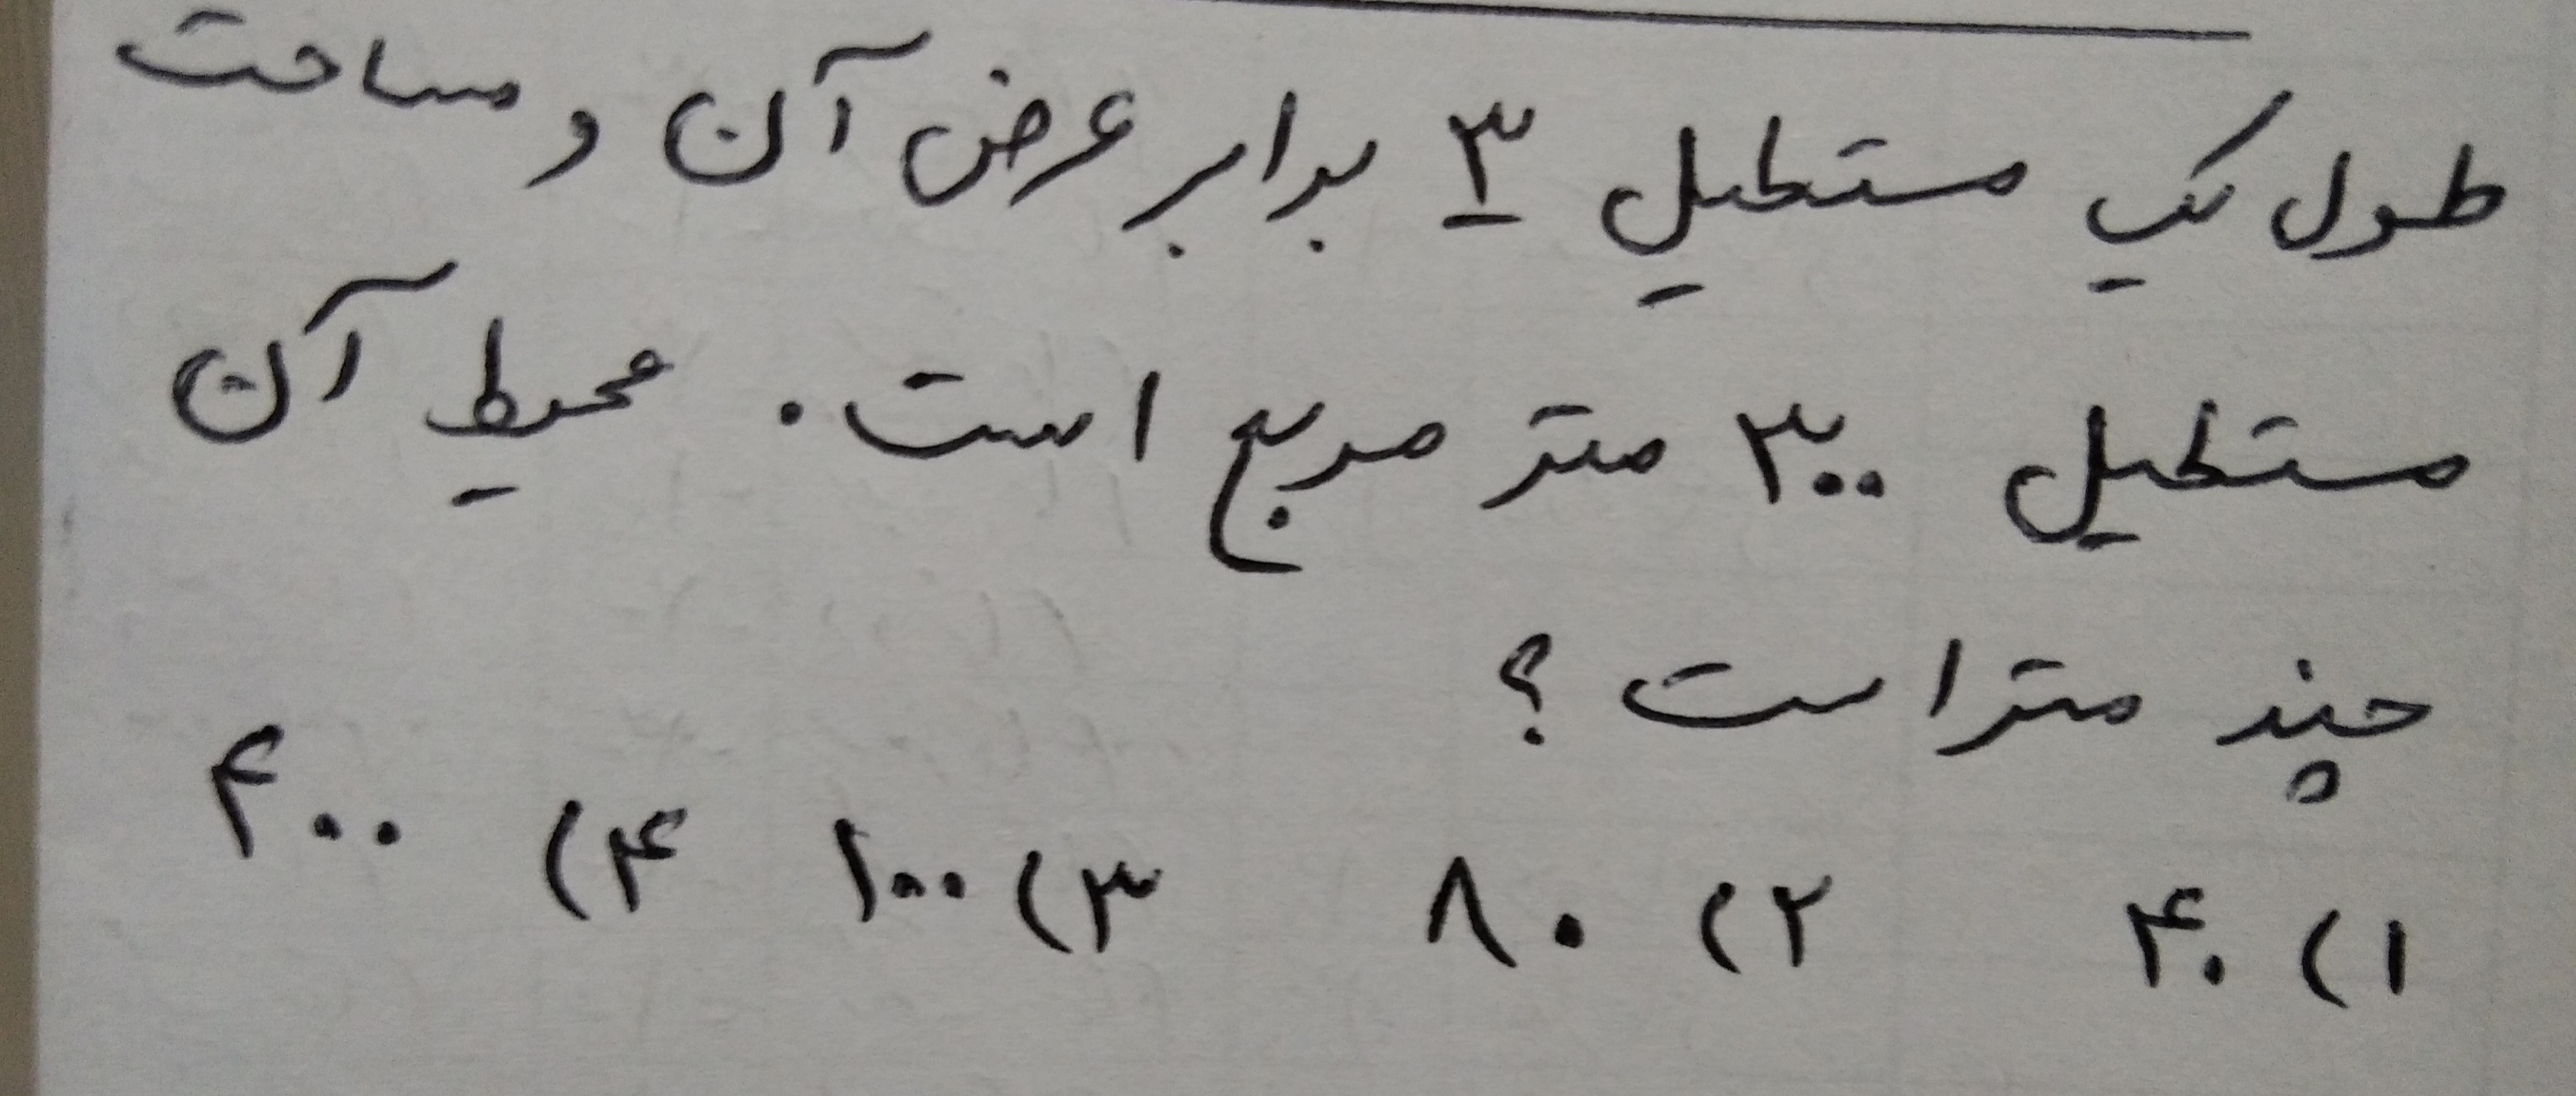 طول یک مستطیل ۳ برابر عرض آن و مساحت
مستطیل ۳۰۰ متر مربع است. محیط آن
چند متر است؟
۱) ۴۰ ۲) ۸۰ ۳) ۱۰۰ ۴) ۴۰۰